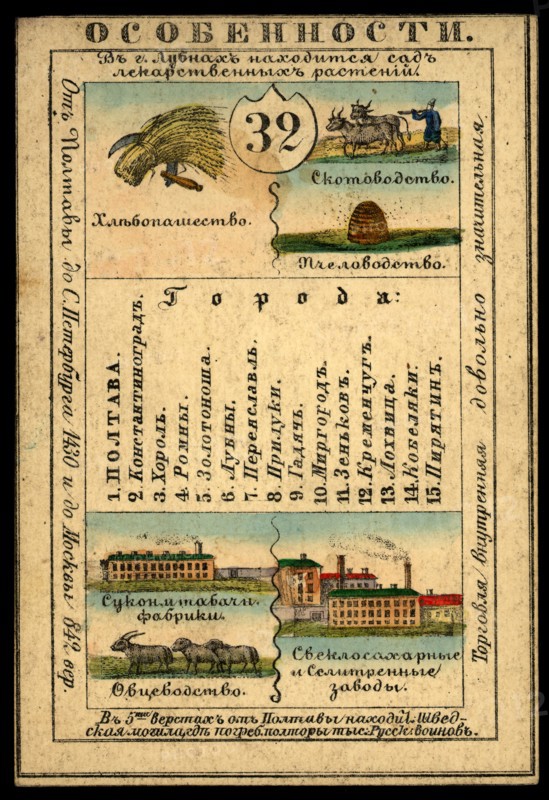 ОСОБЕННОСТИ.
Въ г. Лубнахъ находится садъ
лекарственныхъ растеній.
Отъ Полтавы до С. Петербурга 1430 и до Москвы 842 вер.
32
Хлѣбопашество.
Скотоводство.
Пчеловодство.
Города:
1. ПОЛТАВА.
2. Константиноградъ.
3. Хороль.
4. Ромны.
5. Золотоноша.
6. Лубны.
7. Переяславль.
8. Прилуки.
9. Гадячь.
10. Миргородъ.
11. Зеньковъ.
12. Кременчугъ.
13. Лохвица.
14. Кобеляки.
15. Пирятинъ.
Сукон. и табачн.
фабрики.
Овцеводство.
Свеклосахарные
и Селитренные
заводы.
Торговля внутренная довольно значительная
Въ 5ти верстахъ отъ Полтавы находи. Швед-
ская могила, гдѣ погреб. полторы тыс. Русск. воиновъ.